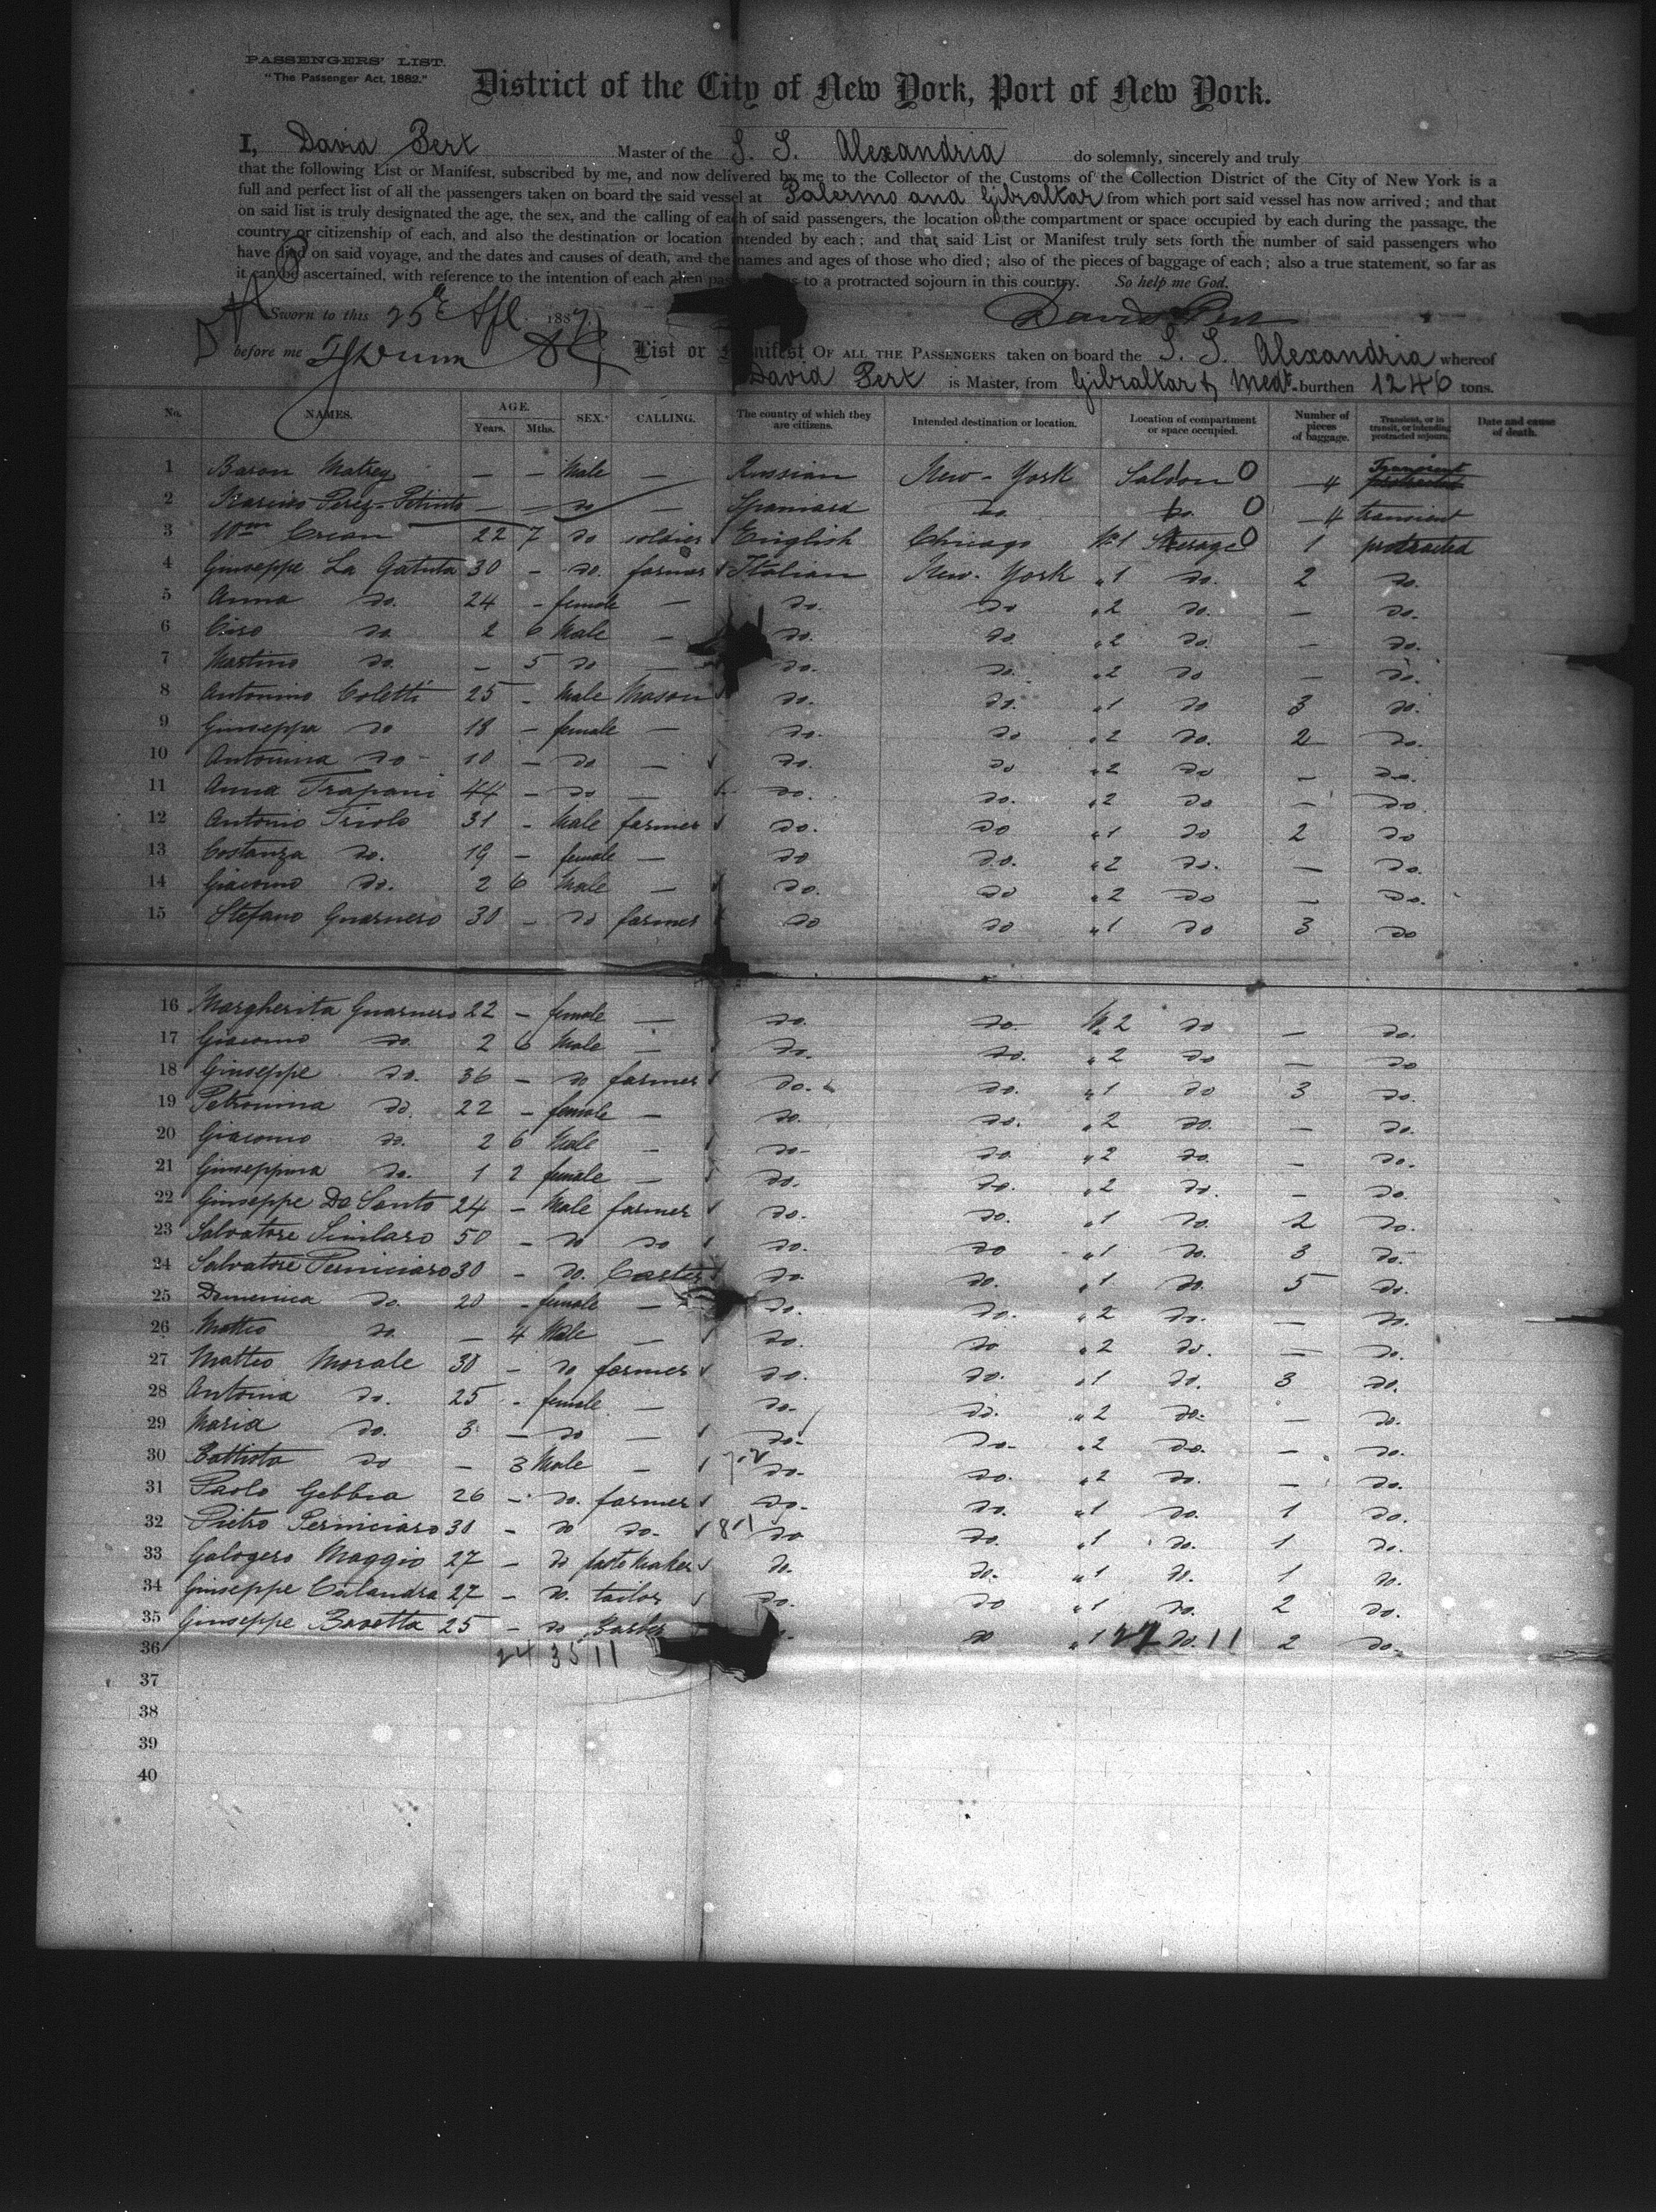 PASSENGERS' LIST.
"The Passenger Act, 1882."
District of the City of New York, Port of New York.
I, David Perx Master of the S. S. Alexandria do solemnly, sincerely and truly
that the following List or Manifest, subscribed by me, and now delivered by me to the Collector of the Customs of the Collection District of the City of New York is a
full and perfect list of all the passengers taken on board the said vessel at Palermo and Gibraltar from which port said vessel has now arrived; and that
on said list is truly designated the age, the sex, and the calling of each of said passengers, the location of the compartment or space occupied by each during the passage, the
country or citizenship of each, and also the destination or location intended by each; and that said List or Manifest truly sets forth the number of said passengers who
have died on said voyage, and the dates and causes of death, and the names and ages of those who died; also of the pieces of baggage of each; also a true statement, so far as
it can be ascertained, with reference to the intention of each alien to a protracted sojourn in this country. So help me God.
Sworn to this 25th 1887 David
before me List or Manifest OF ALL THE PASSENGERS taken on board the S. S. Alexandria whereof
David is Master, from Gibraltar & Medt. burthen 1246 tons.
No. NAMES. AGE. Years. Mths. SEX. CALLING. The country of which they are citizens. Intended destination or location. Location of compartment or space occupied. Number of pieces of baggage. Transient, or in transit, or intending protracted sojourn. Date and cause of death.
1 Baron Matrey — — Male — Russian New-York Saloon 0 4 Transient
2 Perez — — do — Spaniard do do 0 4 transient
3 Wm Crean 22 7 do soldier English Chicago No 1 Steerage 0 1 protracted
4 Giuseppe La Gatuta 30 - do. farmer Italian New-York " 1 do. 2 do.
5 Anna do. 24 - female — do. do " 2 do. — do.
6 Ciro do 2 6 Male — do. do. " 2 do. — do.
7 Martino do. - 5 do — do. do. " 2 do — do.
8 Antonino Coletti 25 - Male Mason do. do. " 1 do 3 do.
9 Giuseppa do 18 - female — do. do " 2 do. 2 do.
10 Antonina do 10 - do — do. do " 2 do — do.
11 Anna Trapani 44 - do — do. do. " 2 do — do
12 Antonio Triolo 31 - Male farmer do. do " 1 do 2 do
13 Costanza do. 19 - female — do do. " 2 do. — do.
14 Giacomo do. 2 6 Male — do. do " 2 do — do.
15 Stefano Guarnero 30 - do farmer do do " 1 do 3 do
16 Margherita Guarnero 22 - female — do. do. No 2 do — do.
17 Giacomo do. 2 6 Male — do. do. " 2 do — do
18 Giuseppe do. 36 - do farmer do. do. " 1 do 3 do.
19 Petronina do. 22 - female — do. do. " 2 do. — do.
20 Giacomo do. 2 6 Male — do. do. " 2 do. — do.
21 Giuseppina do. 1 2 female — do. do. " 2 do. — do.
22 Giuseppe De Santo 24 - Male farmer do. do. " 1 do. 2 do.
23 Salvatore 50 - do do do. do " 1 do. 3 do.
24 Salvatore Perniciaro 30 - do. do. do. " 1 do. 5 do.
25 Domenica do. 20 - female — do. do. " 2 do. — do.
26 Matteo do. — 4 Male — do. do " 2 do. — do.
27 Matteo Morale 30 - do farmer do. do. " 1 do. 3 do.
28 Antonia do. 25 - female — do. do. " 2 do. — do.
29 Maria do. 3 — do — do. do. " 2 do. — do.
30 Battista do — 3 Male — do. do. " 2 do. — do.
31 Paolo Gebbia 26 - do. farmer do. do. " 1 do. 1 do.
32 Pietro Perniciaro 30 - do do. do do. " 1 do. 1 do.
33 Galogero Maggio 27 - do paste Maker do. do. " 1 do. 1 do.
34 Giuseppe Calandra 27 - do. tailor do. do " 1 do. 2 do.
35 Giuseppe Bavetta 25 - do Barber do " 1 do. 11 2 do.
36 24 35 11
37
38
39
40